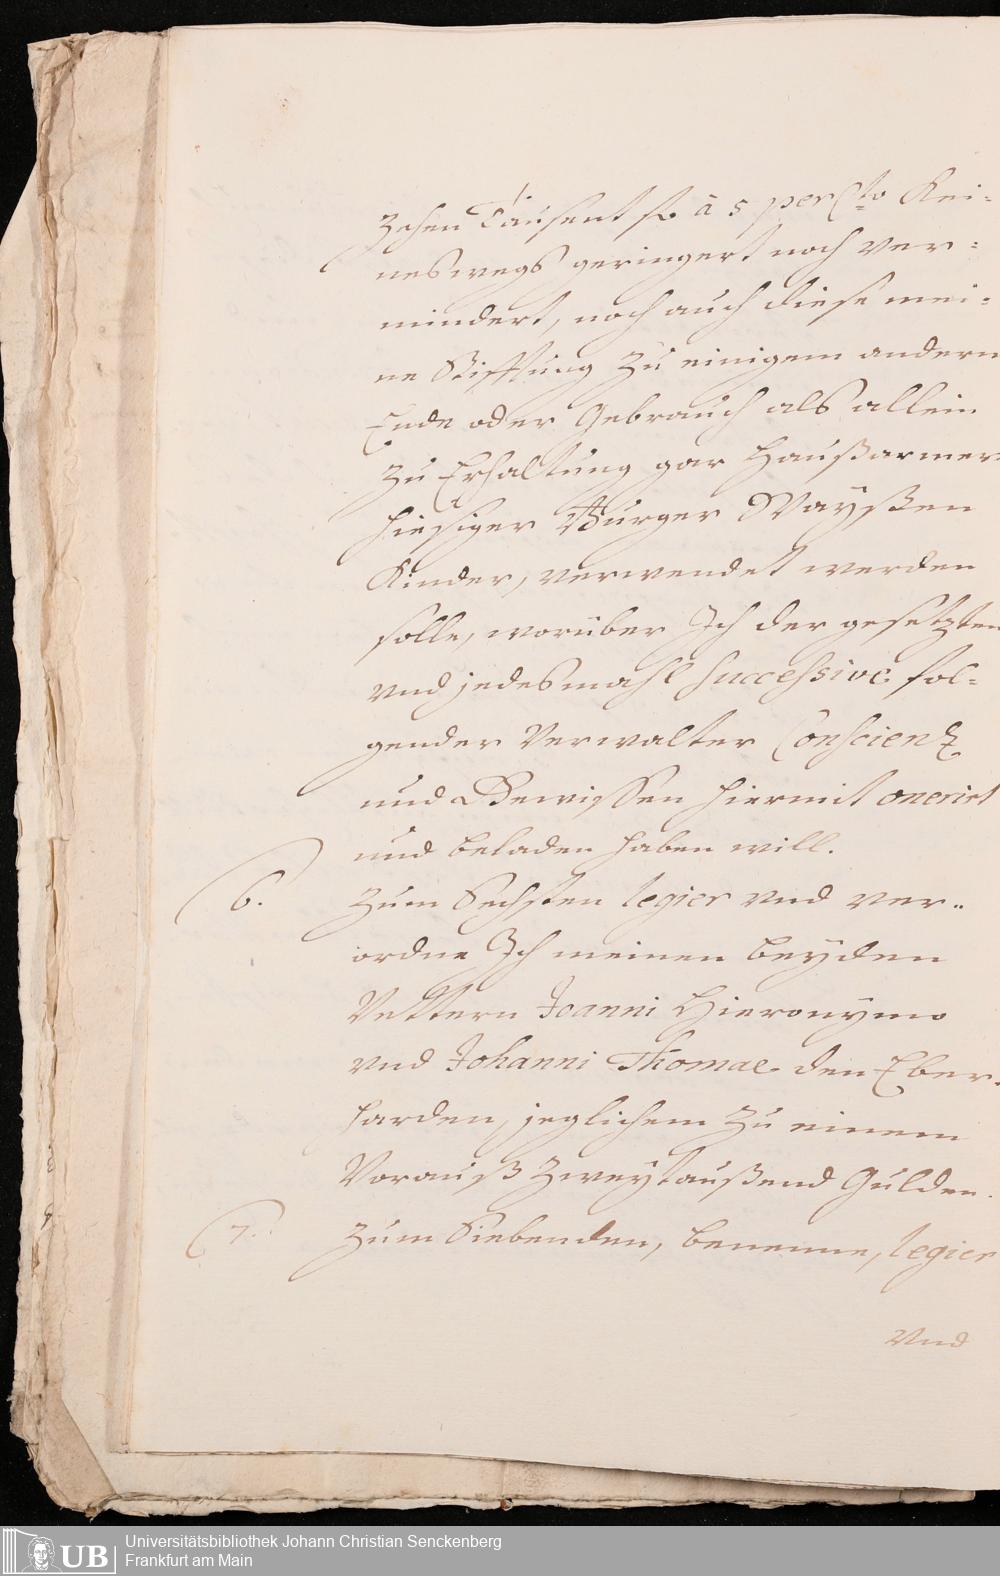 zehen Tausent fl. à 5 perCto Kei=
neswegs geringert noch ver=
mindert, noch auch diese mei=
ne Stifftung zu einigem andern
Ende oder Gebrauch als allein
zu Erhaltung gar Haußarmer
hiesiger Burger Waÿßen
Kinder, verwendet werden
solle, worüber Ich der gesetzten
vnd jedesmahl Successive fol=
gender Verwalter Conscientz
und Gewissen hiermit onerirt
und beladen haben will.
6. Zum Sechsten legier vnd ver=
ordne Ich meinen beÿden
Vettern Joanni Hieronymo
vnd Johanni Thomae den Eber=
harden, jeglichem zu einem
Vorauß Zweÿtaußend Gulden.
7. Zum Siebenden, benenne, legier
Vnd
UB
Universitätsbibliothek Johann Christian Senckenberg
Frankfurt am Main